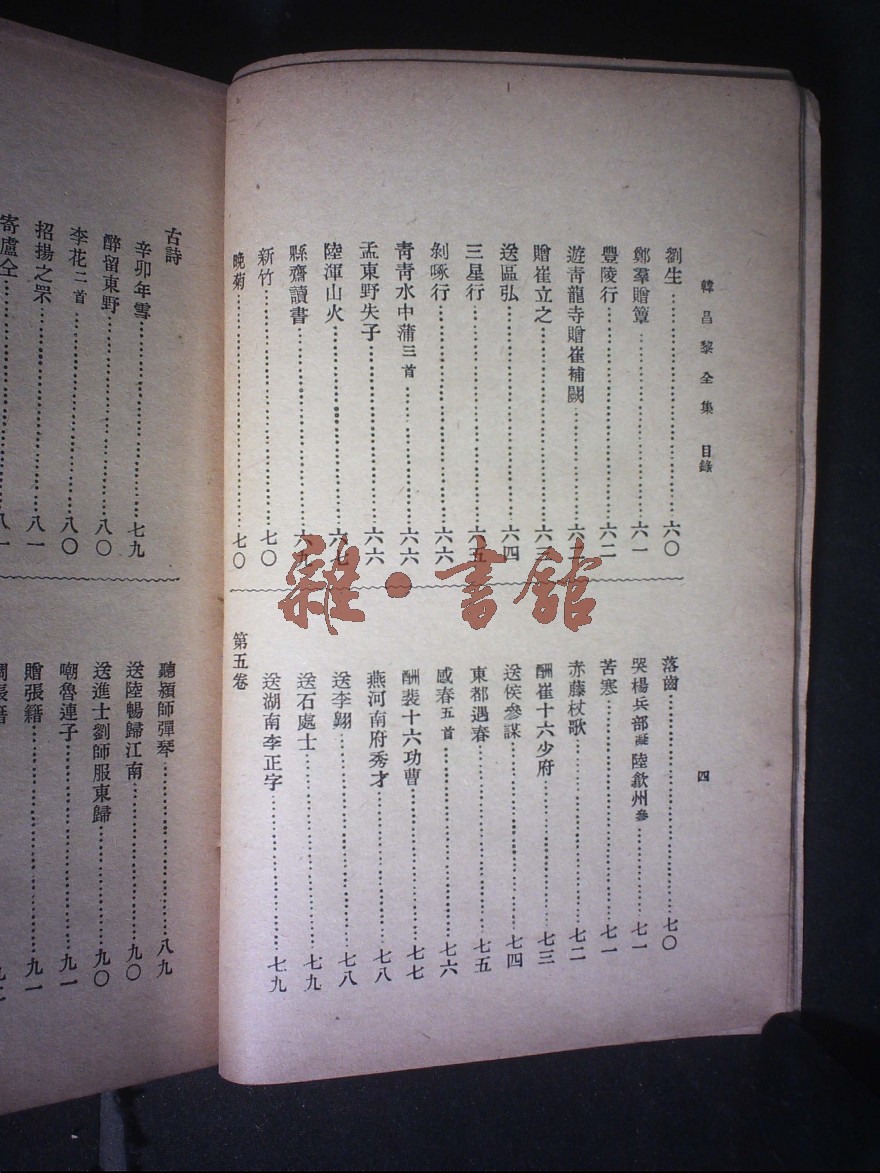 韓昌黎全集 目錄
四
劉生……六〇
鄭羣贈簟……六一
豐陵行……六二
遊青龍寺贈崔補闕……六二
贈崔立之……六三
送區弘……六四
三星行……六五
剝啄行……六六
青青水中蒲三首……六六
孟東野失子……六六
陸渾山火……六七
縣齋讀書……六九
新竹……七〇
晚菊……七〇
落齒……七〇
哭楊兵部凝陸歙州參……七一
苦寒……七一
赤藤杖歌……七二
酬崔十六少府……七三
送侯參謀……七四
東都遇春……七五
感春五首……七六
酬裴十六功曹……七七
燕河南府秀才……七八
送李翺……七八
送石處士……七九
送湖南李正字……七九
第五卷
古詩
辛卯年雪……七九
醉留東野……八〇
李花二首……八〇
招揚之罘……八一
寄盧仝……八一
聽穎師彈琴……八九
送陸暢歸江南……九〇
送進士劉師服東歸……九〇
嘲魯連子……九一
贈張籍……九一
雜·書館